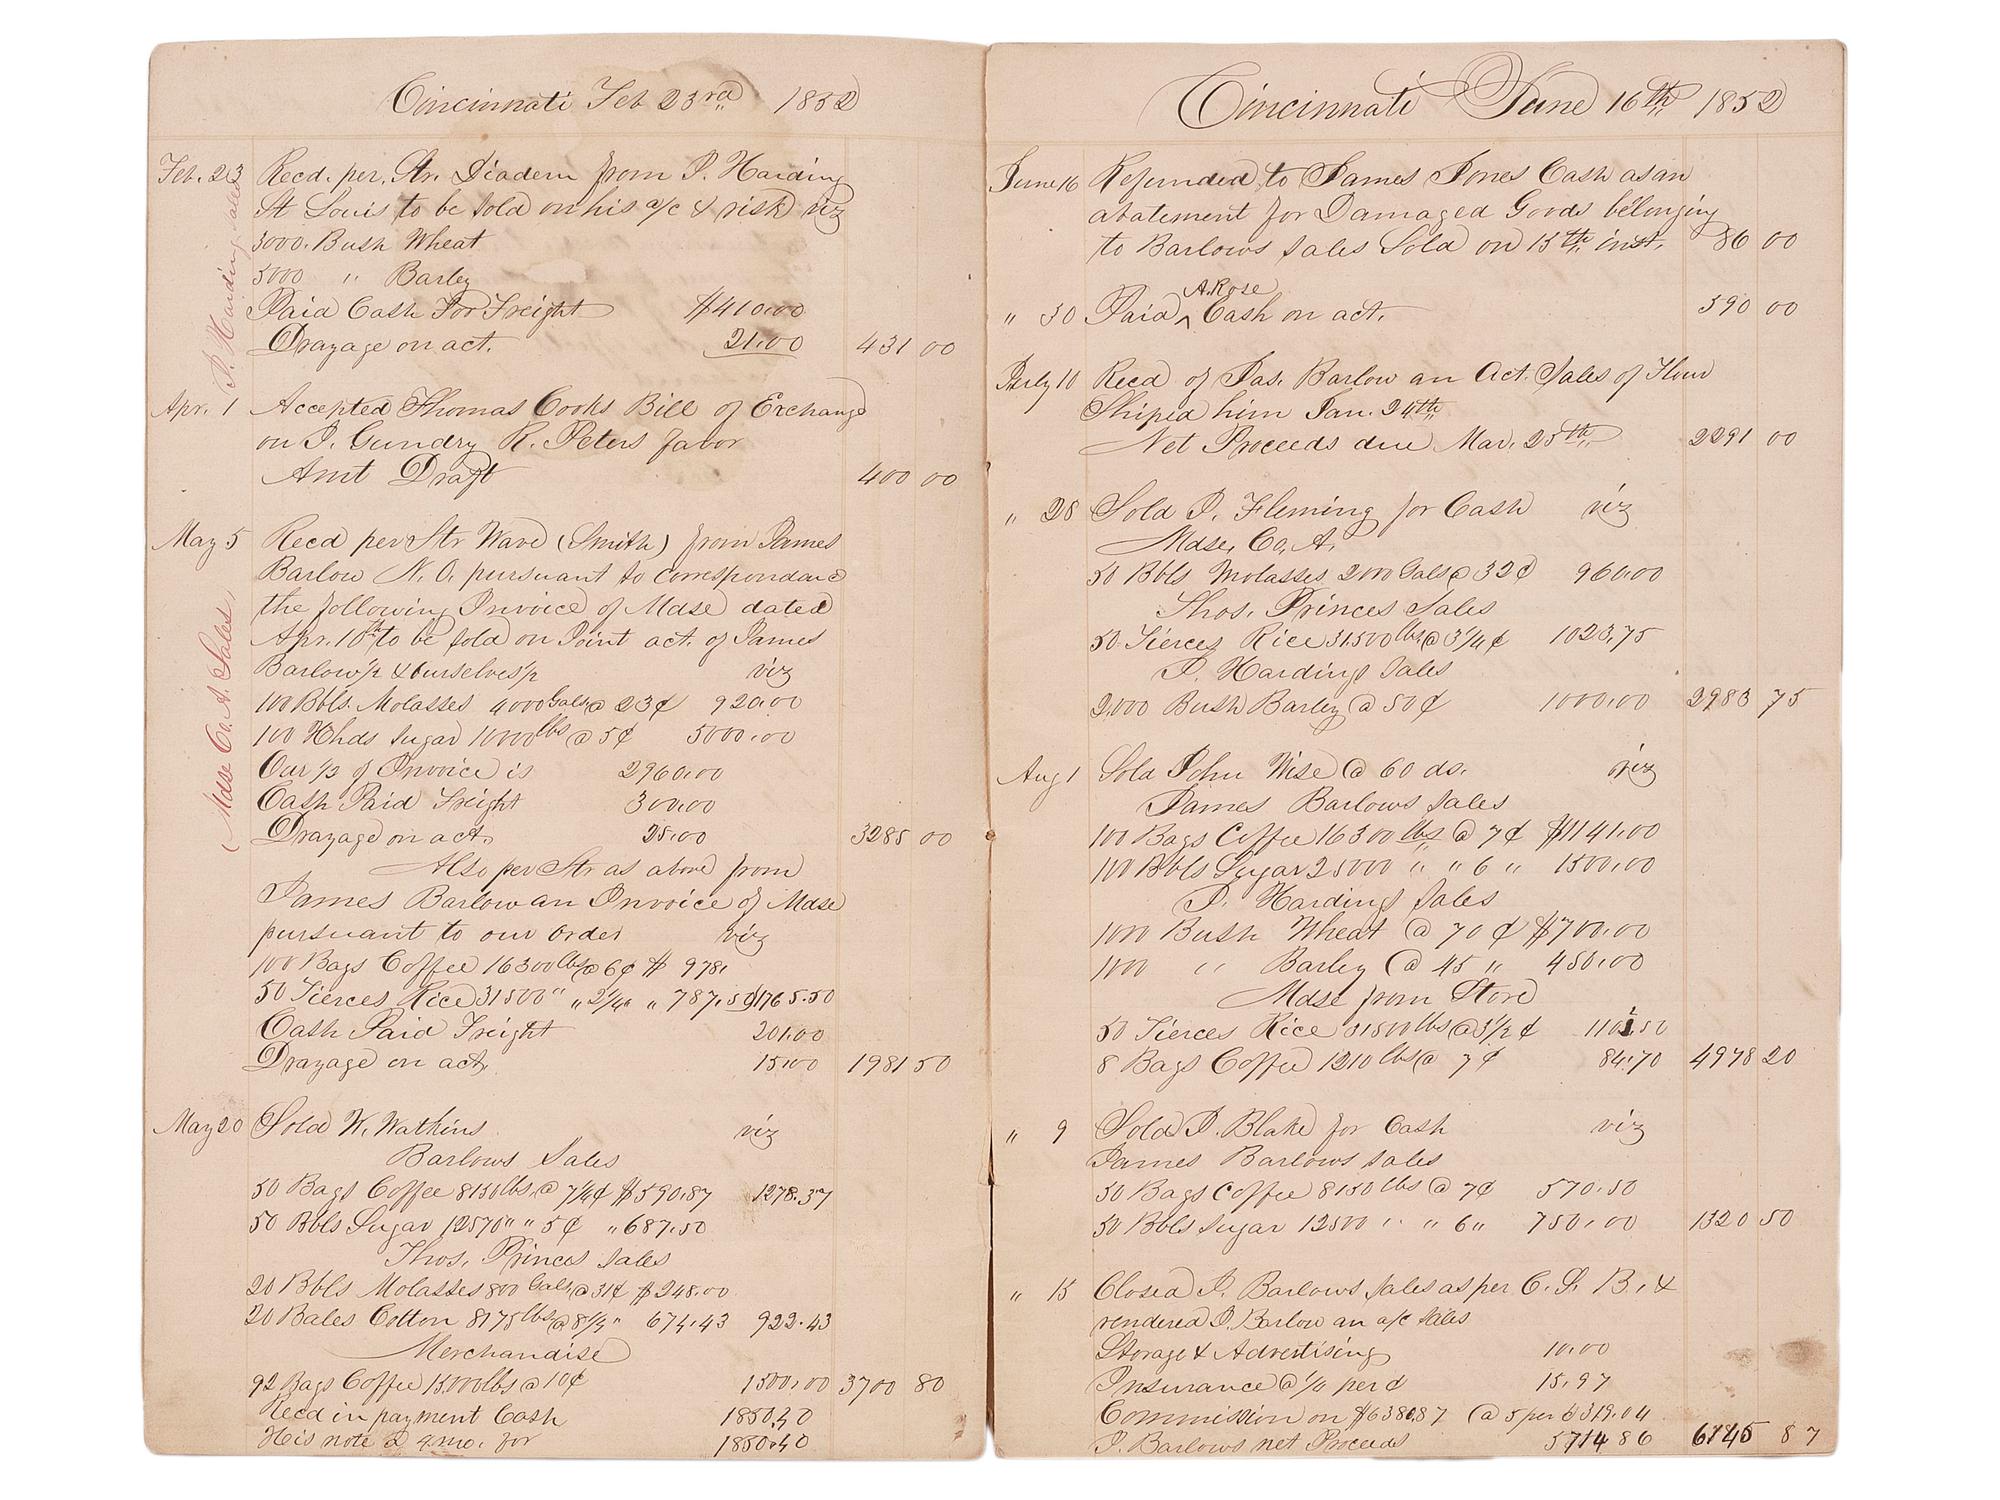 Cincinnati Feb 23rd 1852
Feb. 23 Recd. per. Str. Diadem from J. Harding
St Louis to be sold on his a/c & risk viz
3000. Bush Wheat
5000 " Barley
Paid Cash For Freight $410.00
Drayage on act. 21.00 431 00
J. Harding Sales
Apr. 1 Accepted Thomas Cooks Bill of Exchange
on J. Gundry R. Peters favor
Amt Draft 400 00
May 5 Recd per Str Wave (Smith) from James
Barlow N. O. pursuant to correspondance
the following Invoice of Mdse dated
Apr. 10th to be sold on Joint act. of James
Barlow 1/2 & Ourselves 1/2 viz
100 Bbls. Molasses 4000 Gals @ 23¢ 920.00
100 Hhds Sugar 10000 lbs @ 5¢ 5000.00
Our 1/2 of Invoice is 2960.00
Cash Paid Freight 300.00
Drayage on act. 25.00 3285 00
Mdse Co. A. Sales.
Also per Str as above from
James Barlow an Invoice of Mdse
pursuant to our order viz
100 Bags Coffee 16300 lbs @ 6¢ $ 978.
50 Tierces Rice 31500 " " 2 1/2 " " 787.50 $1765.50
Cash Paid Freight 201.00
Drayage on act, 15.00 1981 50
May 20 Sold W. Watkins viz
Barlows Sales
50 Bags Coffee 8150 lbs. @ 7 1/4¢ $590.87 1278.37
50 Bbls Sugar 12570 " " 5¢ " 687.50
Thos. Princes Sales
20 Bbls Molasses 800 Gals. @ 31¢ $248.00
20 Bales Cotton 8175 lbs @ 8 1/4 " 674.43 922.43
Merchandise
92 Bags Coffee 15.000 lbs @ 10¢ 1500.00 3700 80
Recd in payment Cash 1850.40
His note @ 4 mo. for 1850.40
Cincinnati June 16th 1852
June 16 Refunded to James Jones Cash as an
abatement for Damaged Goods belonging
to Barlows Sales Sold on 15th inst. 86 00
A. Rose
" 30 Paid ^ Cash on act. 590 00
July 10 Recd of Jas. Barlow an Act. Sales of Flour
Shiped him Jan. 24th
Net Proceeds due Mar. 25th 2291 00
" 28 Sold J. Fleming for Cash viz
Mdse. Co. A.
50 Bbls Molasses 2000 Gals @ 32¢ 960.00
Thos. Princes Sales
50 Tierces Rice 31500 lbs @ 3 1/4¢ 1023.75
J. Hardings Sales
2.000 Bush Barley @ 50¢ 1000.00 2983 75
Aug 1 Sold John Wise @ 60 ds. viz
James Barlows Sales
100 Bags Coffee 16300 lbs @ 7¢ $1141.00
100 Bbls Sugar 25000 " " 6 " 1500.00
J. Hardings Sales
1000 Bush Wheat @ 70¢ $700.00
1000 " Barley @ 45 " 450.00
Mdse from Store
50 Tierces Rice 31500 lbs @ 3 1/2¢ 1102.50
8 Bags Coffee 1210 lbs @ 7¢ 84.70 4978 20
" 9 Sold J. Blake for Cash viz
James Barlows Sales
50 Bags Coffee 8150 lbs @ 7¢ 570.50
50 Bbls Sugar 12500 " " 6 " 750.00 1320 50
" 15 Closed J. Barlows Sales as per C. S. B. &
rendered J. Barlow an a/c Sales
Storage & Advertising 10.00
Insurance @ 1/4 per ¢ 15.97
Commission on $6380.87 @ 5 per ¢ 319.04
J. Barlows net Proceeds 5714 86 6145 87